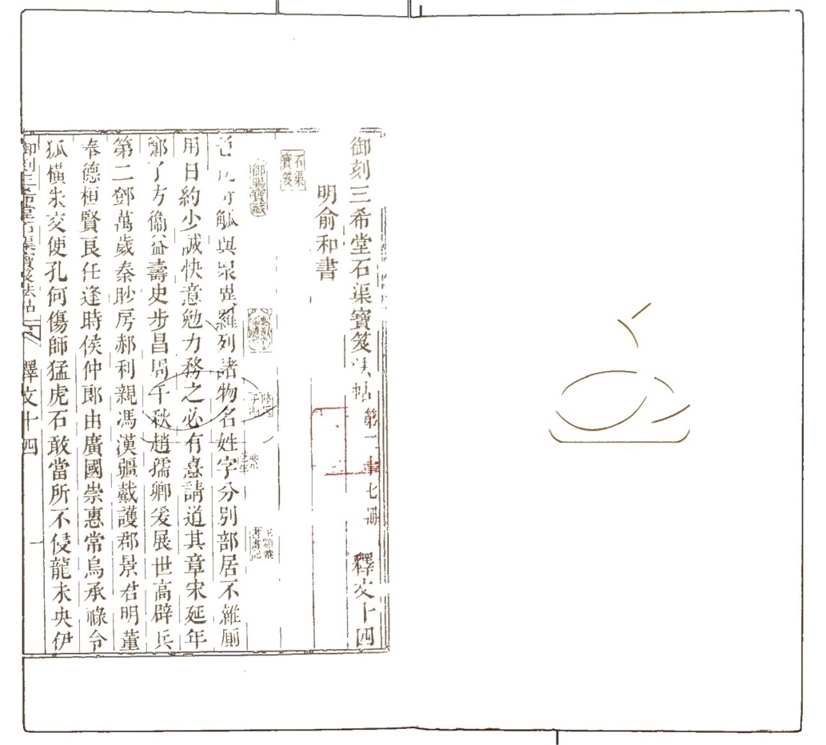 御刻三希堂石渠寶笈法帖第二十七冊 釋文十四
明俞和書
石渠寶笈
御賜寶藏
奇觚與衆異羅列諸物名姓字分別部居不雜廁
用日約少誠快意勉力務之必有憙請道其章宋延年
鄭子方衞益壽史步昌周千秋趙孺卿爰展世高辟兵
第二鄧萬歲秦眇房郝利親馮漢彊戴護郡景君明董
奉德桓賢良任逢時侯仲郎由廣國崇惠常烏承祿令
狐橫朱交便孔何傷師猛虎石敢當所不侵龍未央伊
御刻三希堂石渠寶笈法帖 釋文十四 一